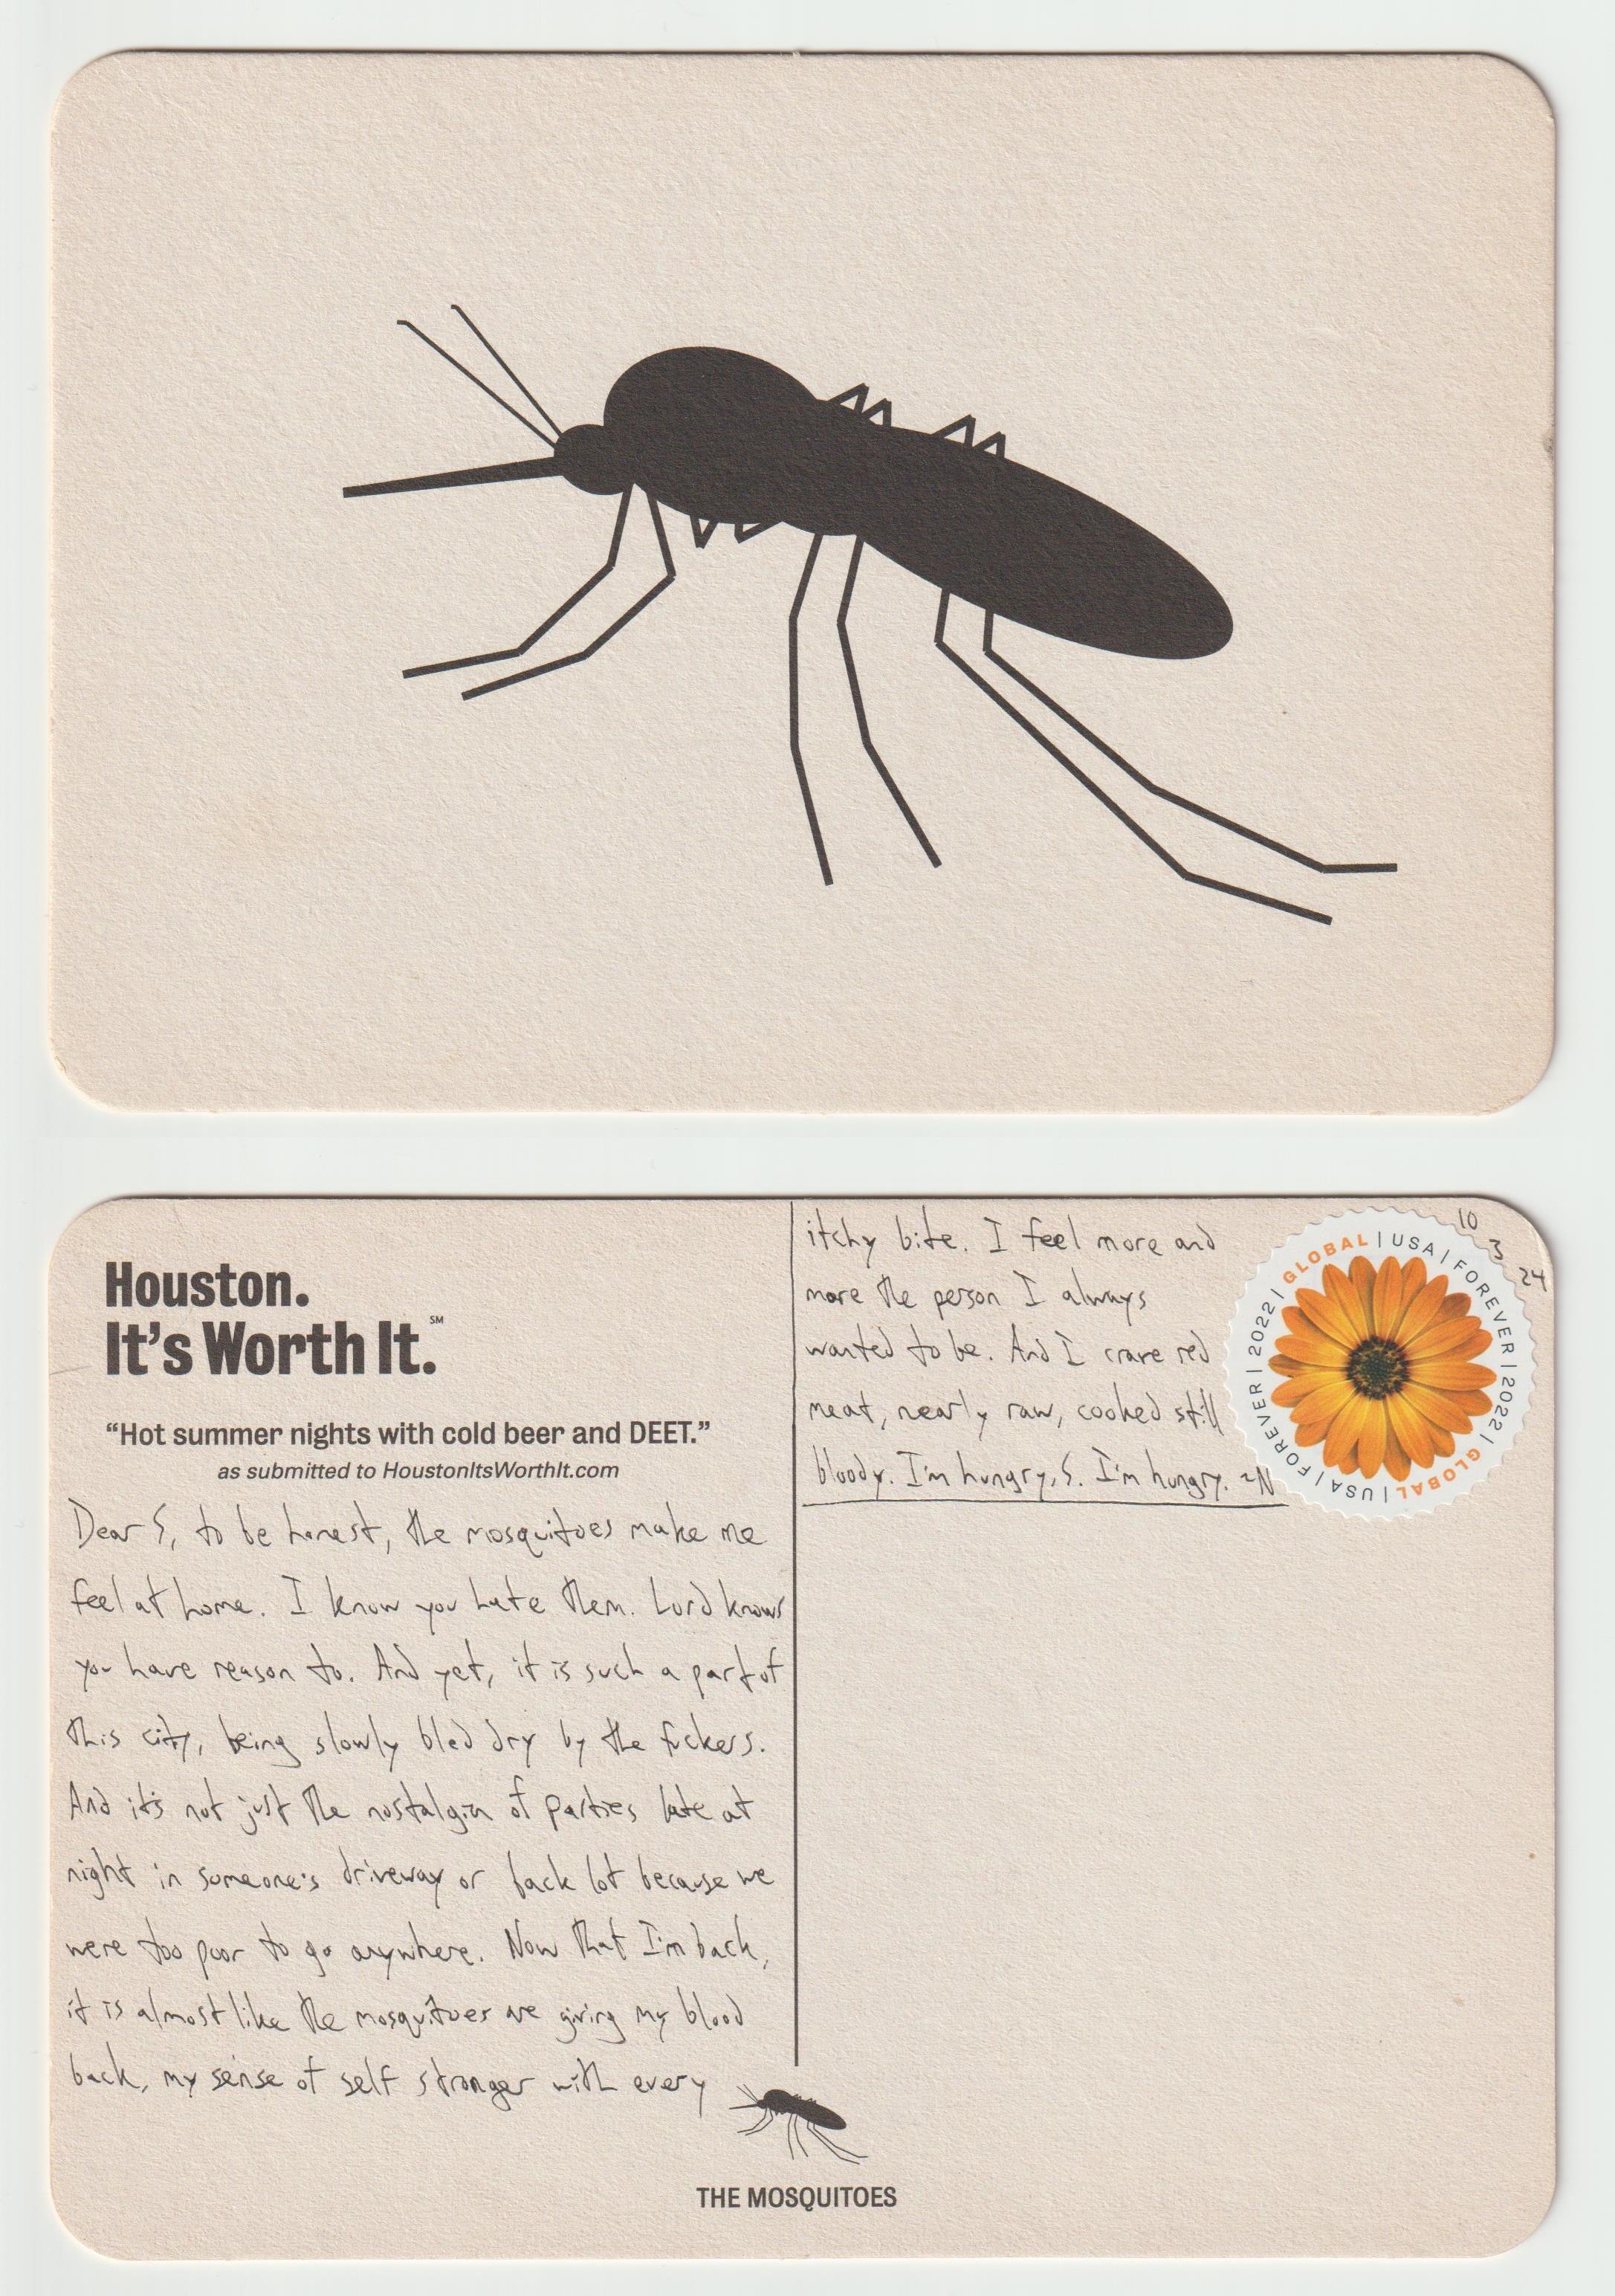 Houston.
It's Worth It.℠
“Hot summer nights with cold beer and DEET.”
as submitted to HoustonItsWorthIt.com
Dear S, to be honest, the mosquitoes make me
feel at home. I know you hate them. Lord knows
you have reason to. And yet, it is such a part of
this city, being slowly bled dry by the fuckers.
And it's not just the nostalgia of parties late at
night in someone's driveway or back lot because we
were too poor to go anywhere. Now that I'm back,
it is almost like the mosquitoes are giving my blood
back, my sense of self stronger with every
itchy bite. I feel more and
more the person I always
wanted to be. And I crave red
meat, nearly raw, cooked still
bloody. I'm hungry, S. I'm hungry. ~N
10
3
24
GLOBAL | USA | FOREVER | 2022 | GLOBAL | USA | FOREVER | 2022 |
THE MOSQUITOES